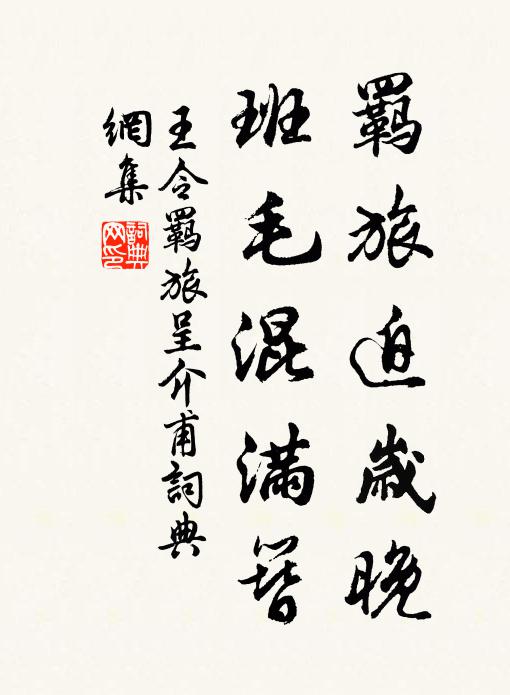 羈旅迫歲晚
班毛混滿簪
王令羈旅呈介甫詞典
網集
詞典
网印